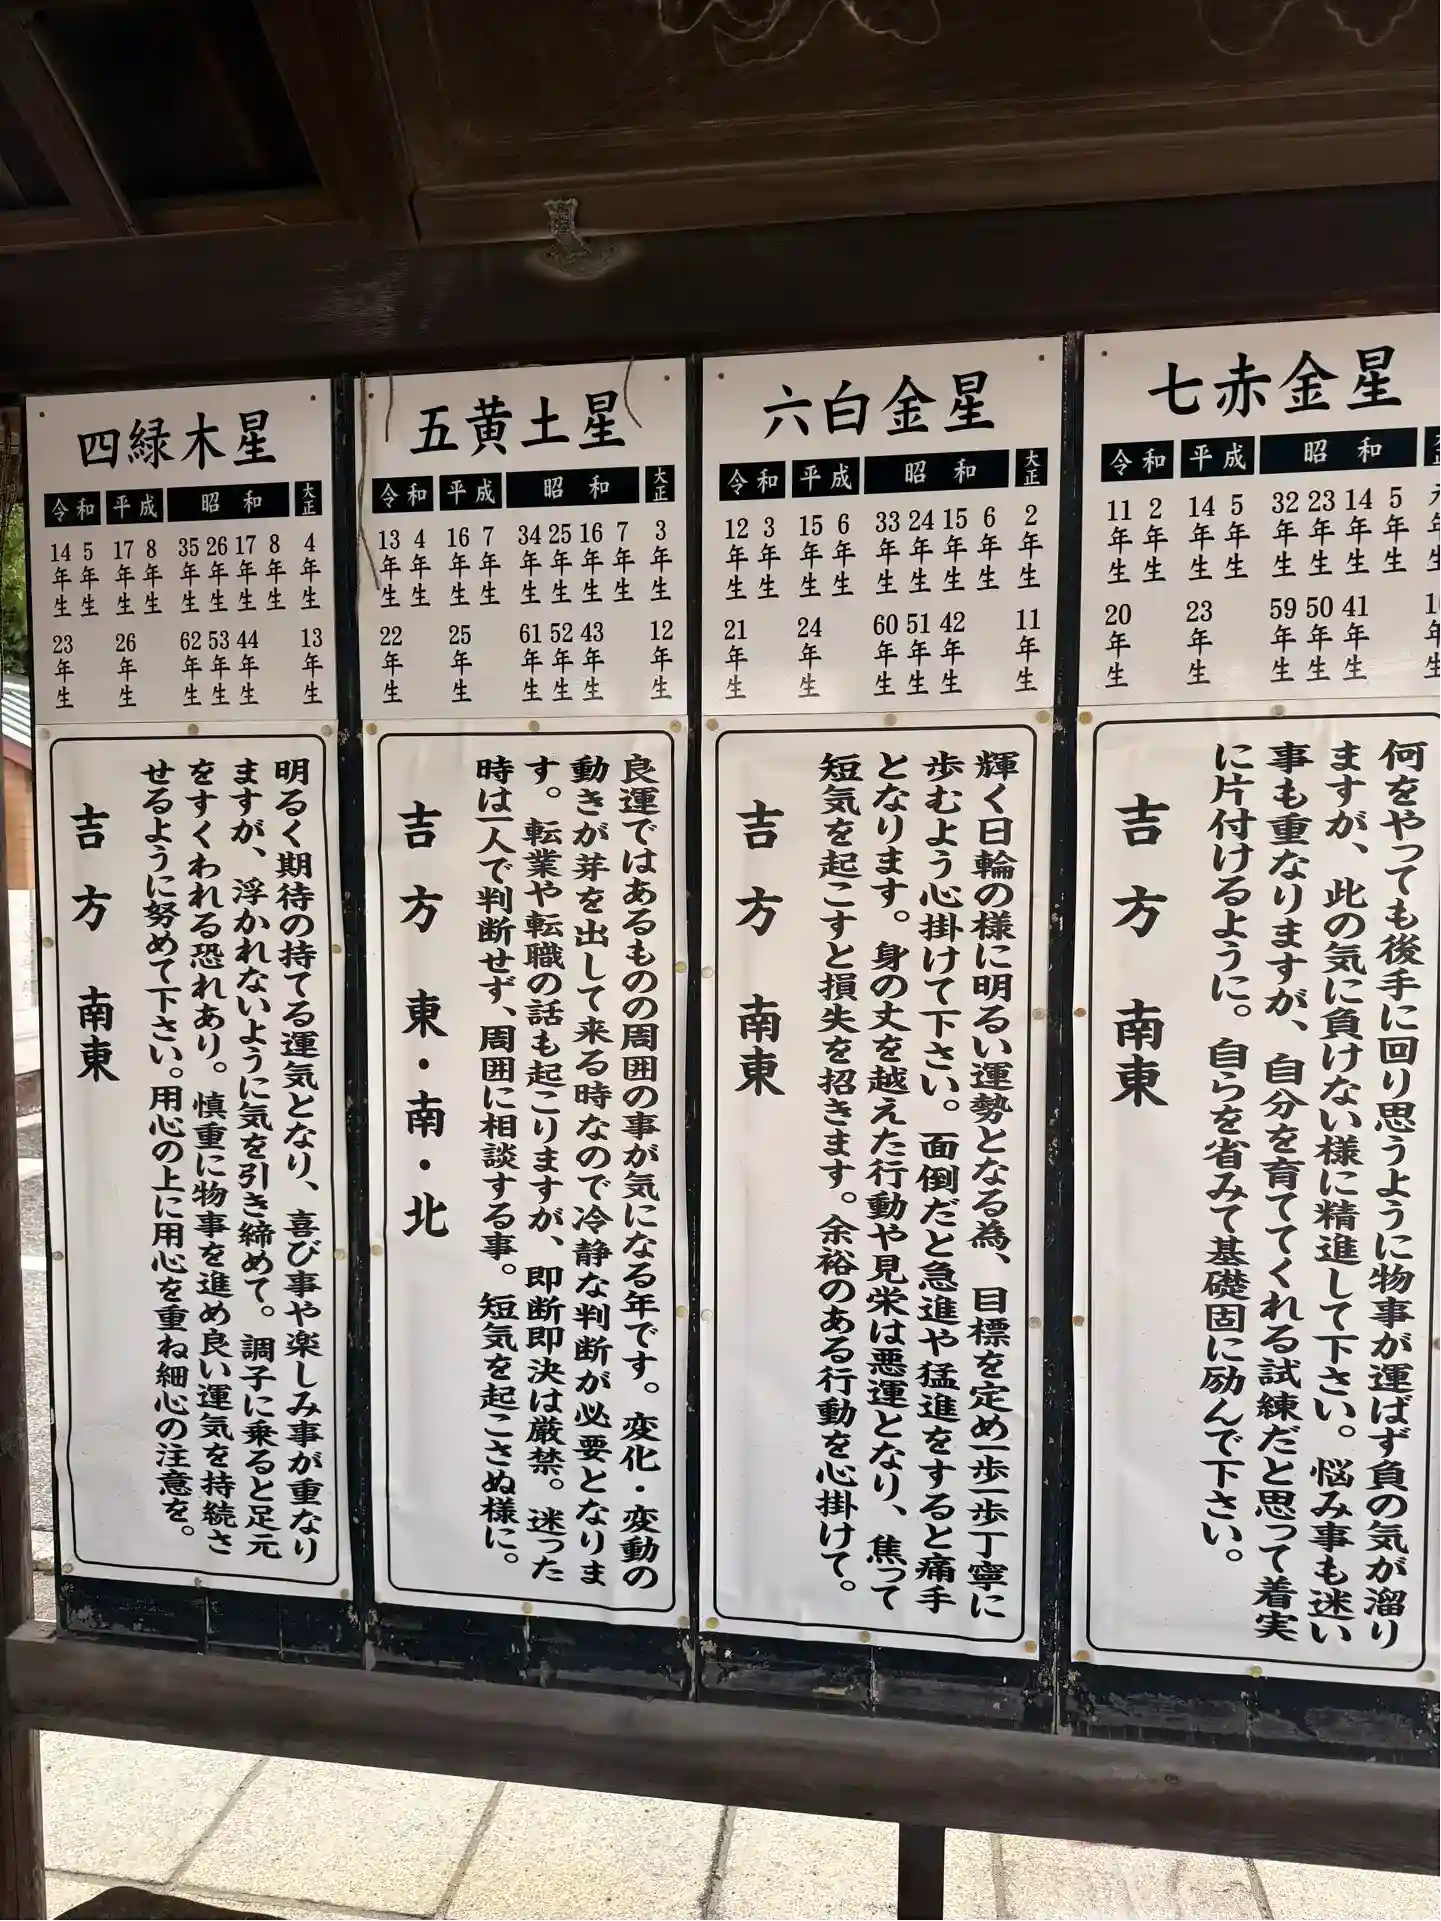 四緑木星
令和 平成 昭和 大正
14年生 5年生 17年生 8年生 35年生 26年生 17年生 8年生 4年生
23年生 26年生 62年生 53年生 44年生 13年生
明るく期待の持てる運気となり、喜び事や楽しみ事が重なり
ますが、浮かれないように気を引き締めて。調子に乗ると足元
をすくわれる恐れあり。慎重に物事を進め良い運気を持続さ
せるように努めて下さい。用心の上に用心を重ね細心の注意を。
吉方 南東
五黄土星
令和 平成 昭和 大正
13年生 4年生 16年生 7年生 34年生 25年生 16年生 7年生 3年生
22年生 25年生 61年生 52年生 43年生 12年生
良運ではあるものの周囲の事が気になる年です。変化・変動の
動きが芽を出して来る時なので冷静な判断が必要となりま
す。転業や転職の話も起こりますが、即断即決は厳禁。迷った
時は一人で判断せず、周囲に相談する事。短気を起こさぬ様に。
吉方 東・南・北
六白金星
令和 平成 昭和 大正
12年生 3年生 15年生 6年生 33年生 24年生 15年生 6年生 2年生
21年生 24年生 60年生 51年生 42年生 11年生
輝く日輪の様に明るい運勢となる為、目標を定め一歩一歩丁寧に
歩むよう心掛けて下さい。面倒だと急進や猛進をすると痛手
となります。身の丈を越えた行動や見栄は悪運となり、焦って
短気を起こすと損失を招きます。余裕のある行動を心掛けて。
吉方 南東
七赤金星
令和 平成 昭和
11年生 2年生 14年生 5年生 32年生 23年生 14年生 5年生
20年生 23年生 59年生 50年生 41年生
何をやっても後手に回り思うように物事が運ばず負の気が溜り
ますが、此の気に負けない様に精進して下さい。悩み事も迷い
事も重なりますが、自分を育ててくれる試練だと思って着実
に片付けるように。自らを省みて基礎固に励んで下さい。
吉方 南東